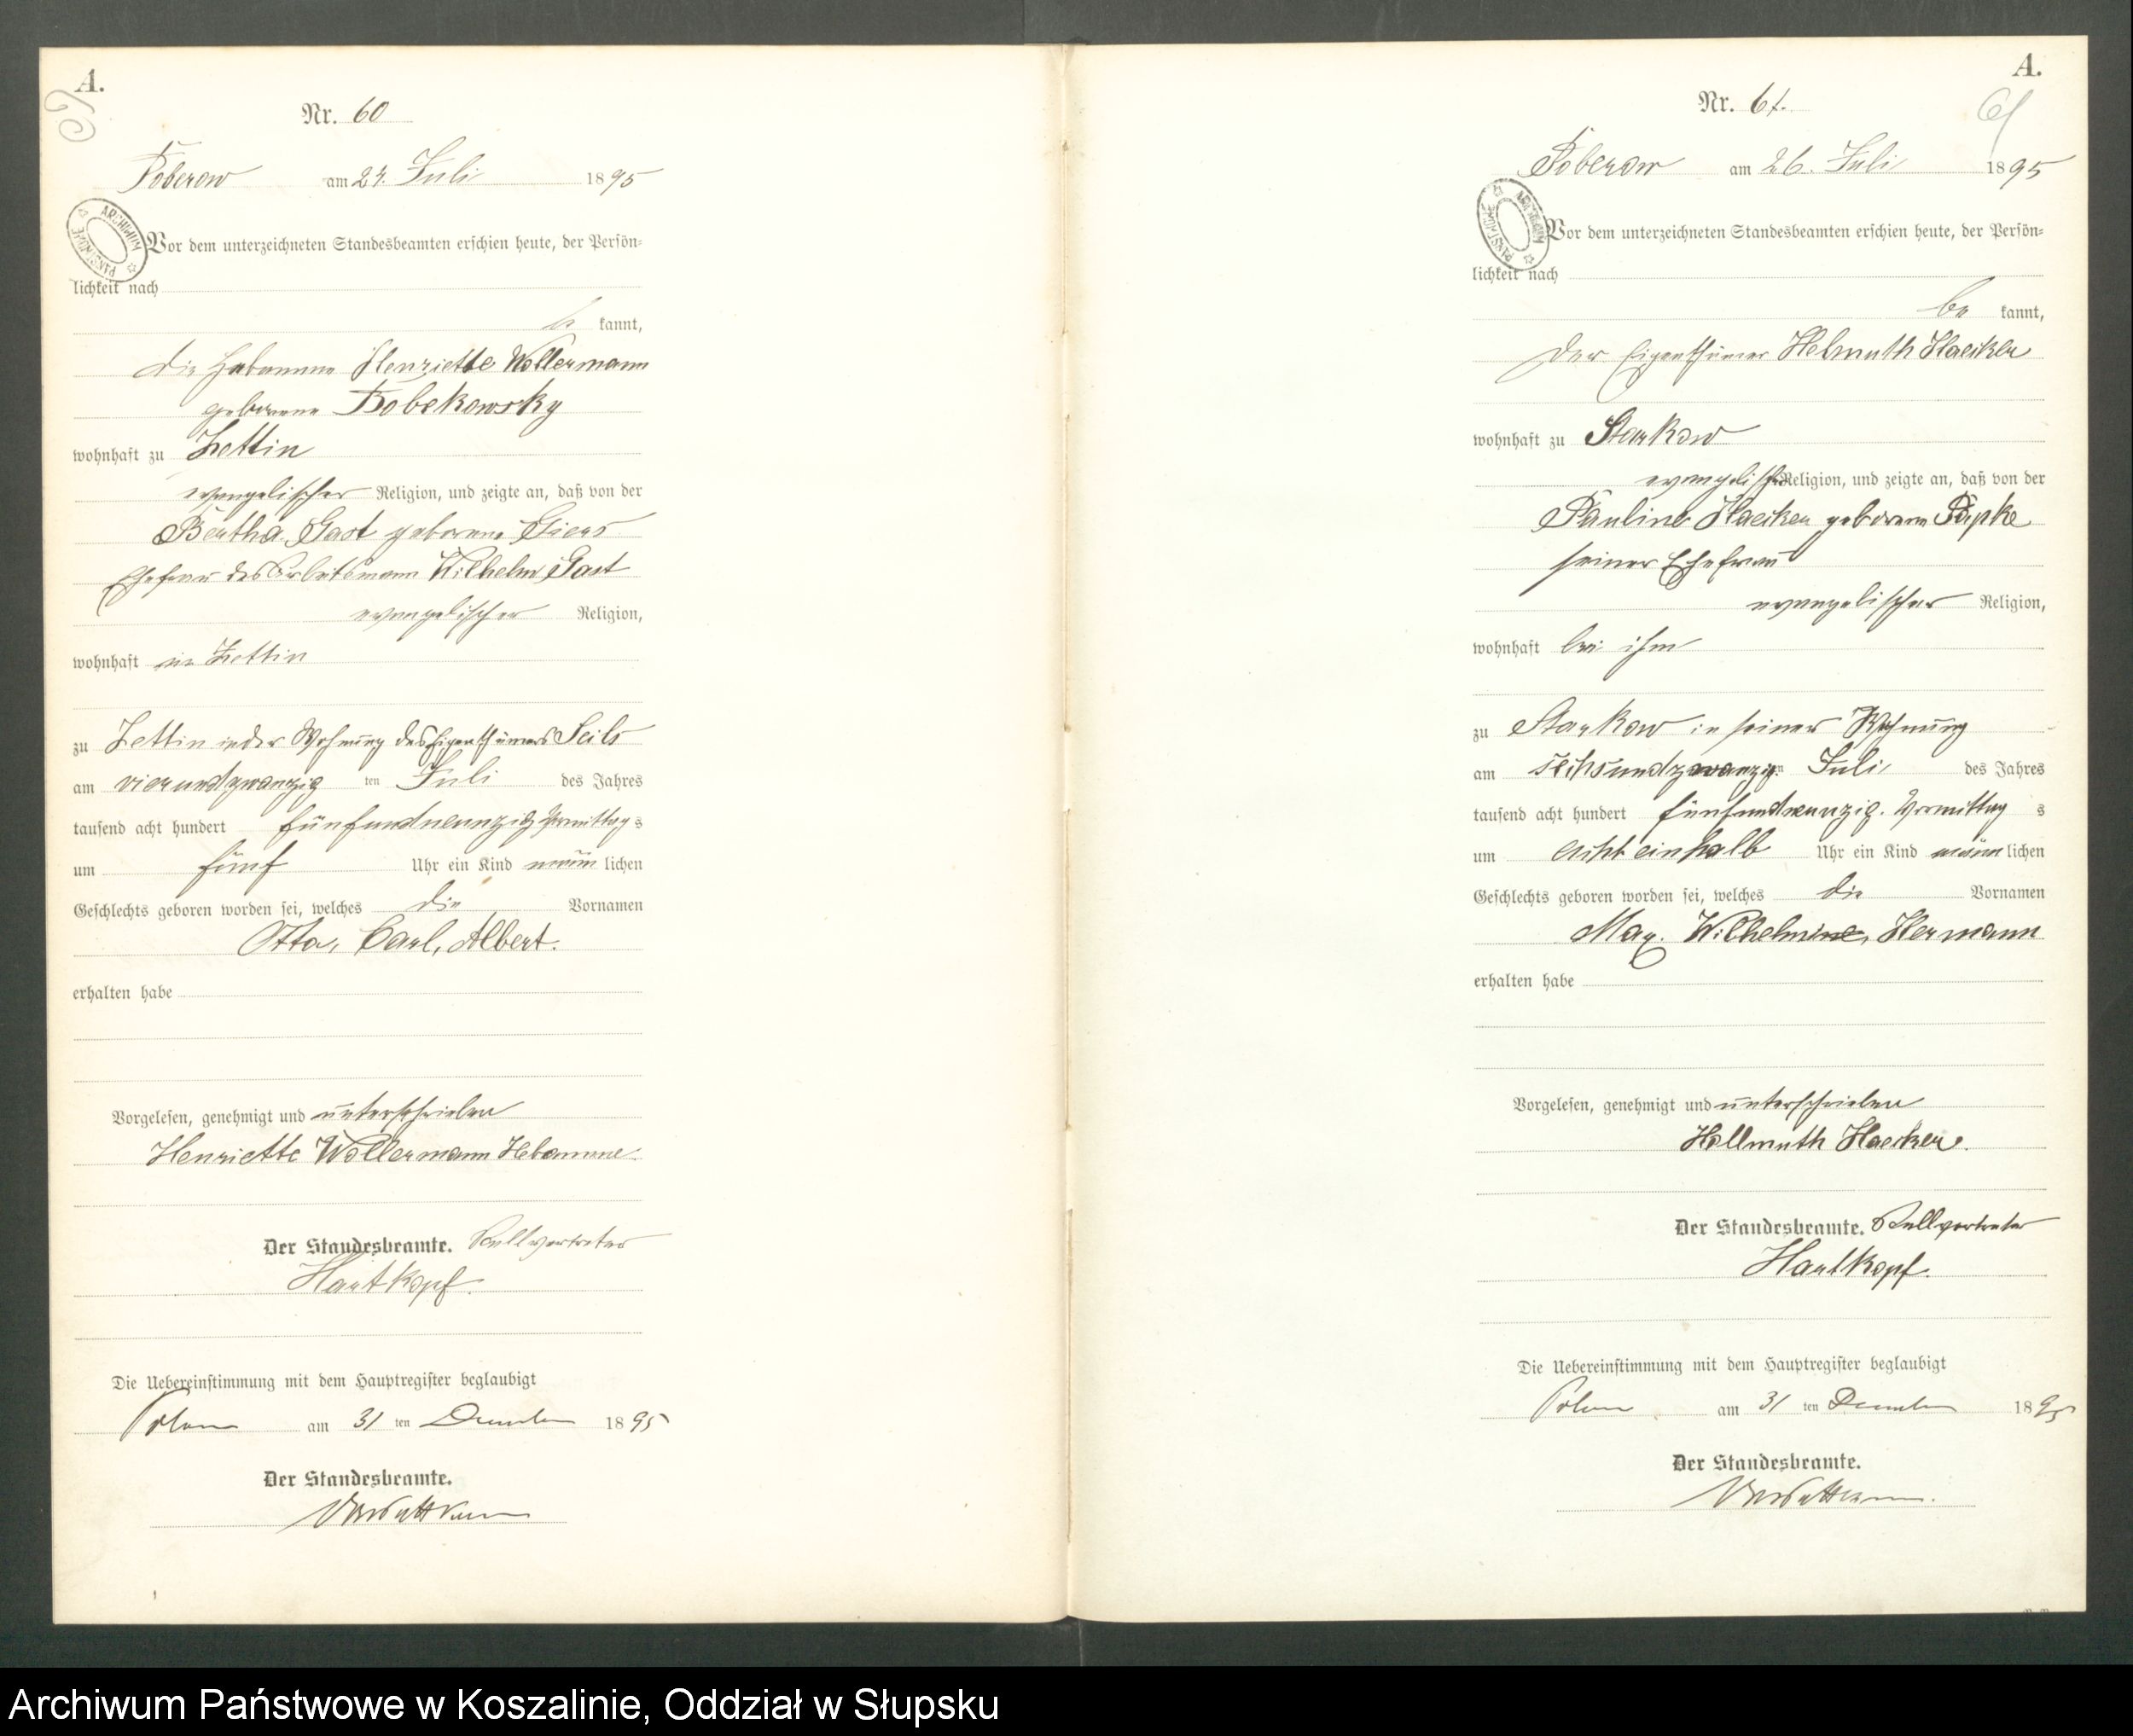 A.
Nr. 60
Poberow am 24. Juli 1895
ARCHIWUM PAŃSTWOWE
Vor dem unterzeichneten Standesbeamten erschien heute, der Persön=
lichkeit nach
be kannt,
die Hebamme Henriette Wollermann
geborene Bobekowsky
wohnhaft zu Zettin
evangelischer Religion, und zeigte an, daß von der
Bertha Gast geborene
Ehefrau des Arbeitsmann Wilhelm Gast
evangelischer Religion,
wohnhaft in Zettin
zu Zettin in der Wohnung des Eigenthümers Seils
am vierundzwanzig ten Juli des Jahres
tausend acht hundert fünfundneunzig Vormittag s
um fünf Uhr ein Kind männ lichen
Geschlechts geboren worden sei, welches die Vornamen
Otto, Carl, Albert.
erhalten habe
Vorgelesen, genehmigt und unterschrieben
Henriette Wollermann Hebamme.
Der Standesbeamte. Stellvertreter
Hartkopf.
Die Uebereinstimmung mit dem Hauptregister beglaubigt
am 31 ten December 1895
Der Standesbeamte.
A.
61
Nr. 61.
Poberow am 26. Juli 1895
ARCHIWUM PAŃSTWOWE
Vor dem unterzeichneten Standesbeamten erschien heute, der Persön=
lichkeit nach
be kannt,
der Eigenthümer Helmuth Haecker
wohnhaft zu Starkow
evangelischer Religion, und zeigte an, daß von der
Pauline Haecker geborene Papke
seiner Ehefrau
evangelischer Religion,
wohnhaft bei ihm
zu Starkow in seiner Wohnung
am sechsundzwanzig ten Juli des Jahres
tausend acht hundert fünfundneunzig. Vormittag s
um acht einhalb Uhr ein Kind männ lichen
Geschlechts geboren worden sei, welches die Vornamen
Max. Wilhelmine, Hermann
erhalten habe
Vorgelesen, genehmigt und unterschrieben
Hellmuth Haecker.
Der Standesbeamte. Stellvertreter
Hartkopf.
Die Uebereinstimmung mit dem Hauptregister beglaubigt
am 31 ten December 1895
Der Standesbeamte.
Archiwum Państwowe w Koszalinie, Oddział w Słupsku